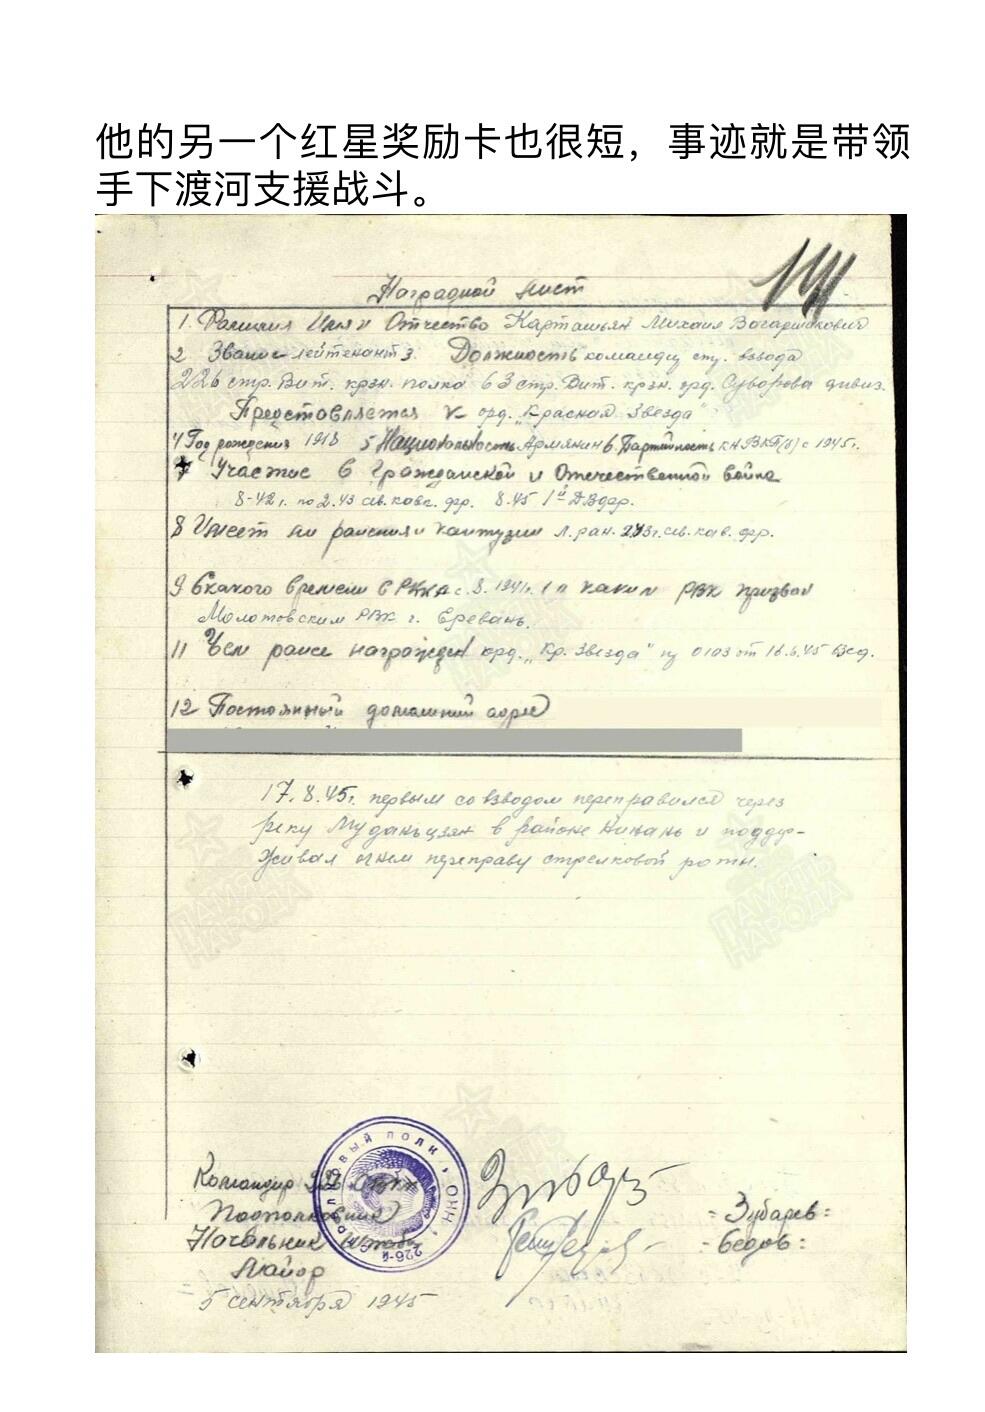 他的另一个红星奖励卡也很短，事迹就是带领
手下渡河支援战斗。
Наградной лист
1. Фамилия Имя и Отчество Карташьян Михаил Вагаршакович
2 Звание лейтенант 3. Должность команд. взвода
226 стр. Вит. крзн. полка 63 стр. Вит. крзн. орд. Суворова дивиз.
Представляется к орд. „Красная Звезда"
4 Год рождения 1918 5 Национальность Армянин 6. Партийность к ВКП(б) с 1945г.
7 Участие в Гражданской и Отечественной война
8-42г. по 2.43 сев. кавк. фр. 8.45 1й Д.В. фр.
8 Имеет ли ранения и контузии л. ран. 2.43г. сев. кав. фр.
9 С какого времени в РККА с 8.1941г. каким РВК призван
Молотовским РВК г. Ереван.
11 Чем ранее награжден орд. „Кр. Звезда" 0103 от 16.6.45 63сд.
12 Постоянный домашний адрес
17.8.45г. первым со взводом переправился через
реку Муданьцзян в районе Нинань и поддер-
живал огнем переправу стрелковой роты.
ПАМЯТЬ НАРОДА
ПАМЯТЬ НАРОДА
Командир 226
Подполковник
=Зубарев=
Начальник штаба
Майор
5 сентября 1945